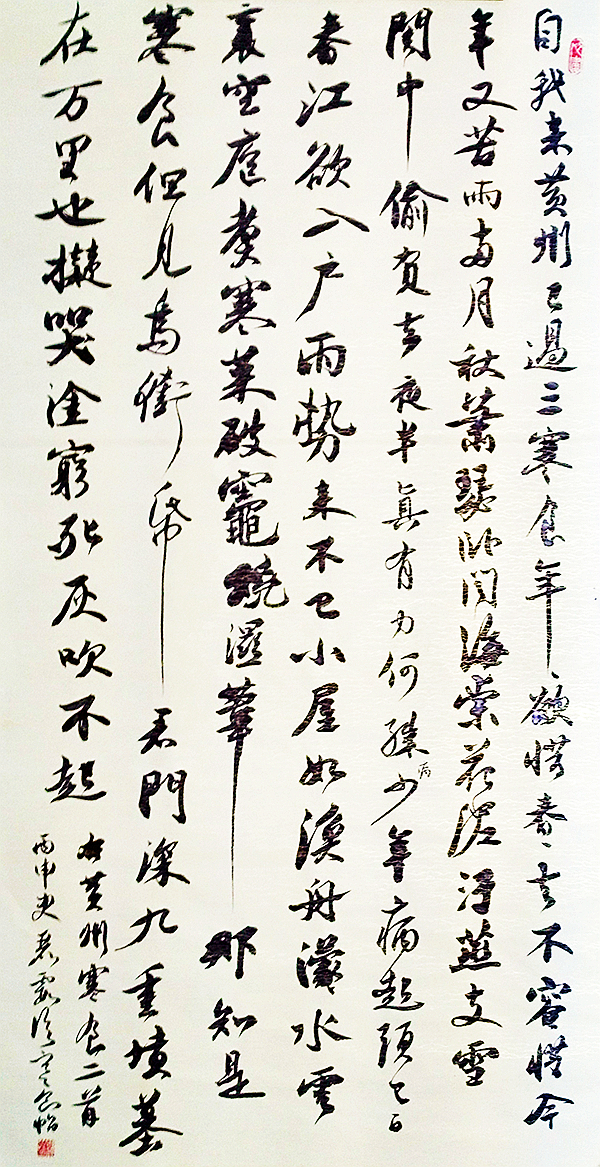 自我来黄州已過三寒食年ヽ欲惜春ヽ去不容惜今
年又苦雨兩月秋蕭瑟卧聞海棠花泥汙燕支雪
闇中偷負去夜半真有力何殊少年病起頭已白
春江欲入户雨勢来不已小屋如漁舟濛水雲
裏空庖煮寒菜破竈燒濕葦那知是
寒食但見烏銜帋君門深九重墳墓
在万里也擬哭塗窮死灰吹不起
右黄州寒食二首
丙申